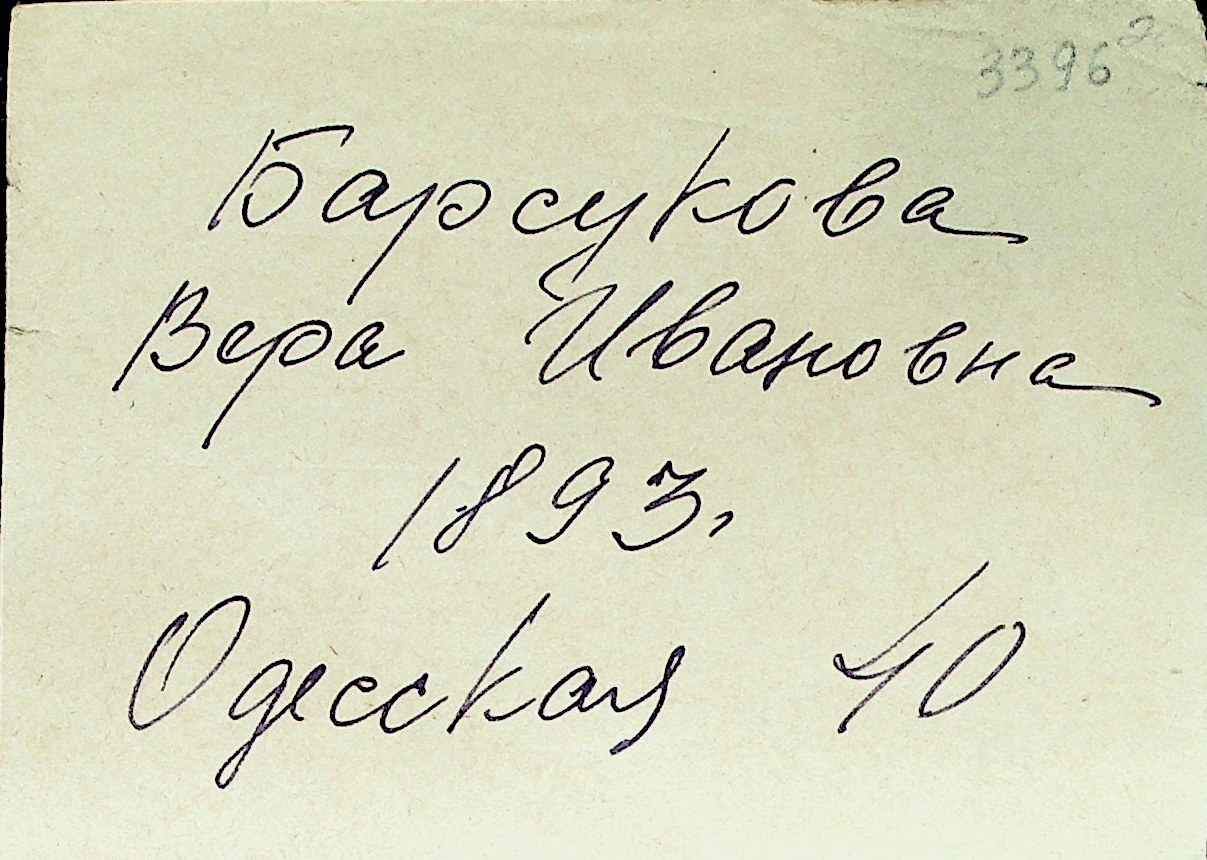 3396 2
Барсукова
Вера Ивановна
1893.
Одесская 40